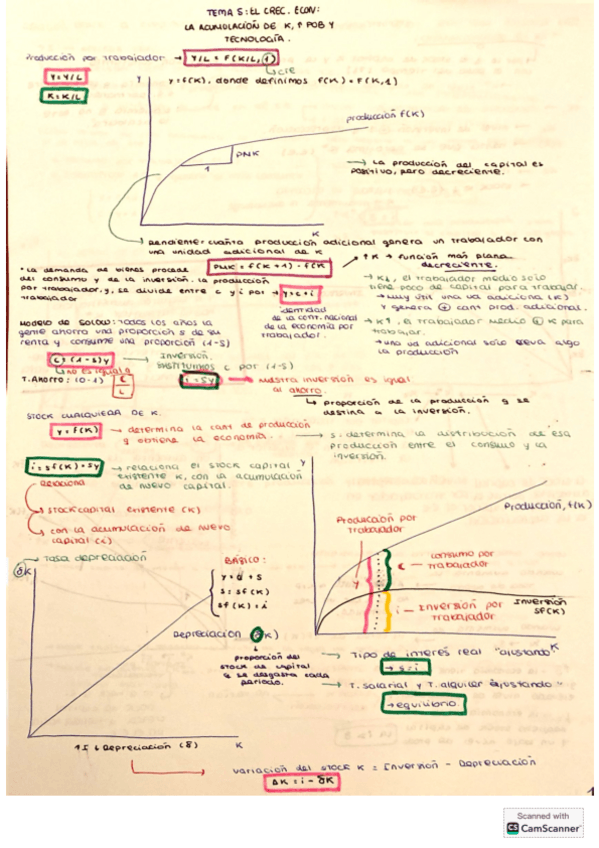 TEMA 5: EL CREC. ECON:
LA ACUMULACIÓN DE K, ↑ POB Y
TECNOLOGÍA.
Producción por trabajador → Y/L = F(K/L, 1)
↳ cte
y = Y/L
K = K/L
Y
y = f(K), donde definimos f(K) = F(K, 1)
producción f(K)
PMK
1
→ La producción del capital es
positivo, pero decreciente.
K
→ Pendiente: cuánta producción adicional genera un trabajador con
una unidad adicional de K
PMK = f(K+1) - f(K)
↑ K → función más plana
decreciente.
• La demanda de bienes procede
del consumo y de la inversión. La producción
por trabajador, y, se divide entre c y i por
trabajador
→ y = c + i
identidad
de la cont. nacional
de la economía por
trabajador.
→ K↓, el trabajador medio solo
tiene poco de capital para trabajar.
→ muy útil una ud adicional (K)
y genera ⊕ cant prod. adicional.
→ K↑, el trabajador medio ⊕ K para
trabajar.
→ una ud adicional solo eleva algo
la producción
Modelo de Solow: Todos los años la
gente ahorra una proporción s de su
renta y consume una proporción (1-s)
c = (1-s)y
→ Inversión.
sustituimos c por (1-s)
no es igual a
T. Ahorro: (0-1)
i = sy
→ muestra inversión es igual
al ahorro.
↳ proporción de la producción q se
destina a la inversión.
STOCK CUALQUIERA DE K.
y = f(K)
→ determina la cant de producción
q obtiene la economía.
→ s: determina la distribución de esa
producción entre el consumo y la
inversión.
i = sf(K) = sy
→ relaciona el stock capital
existente K, con la acumulación
de nuevo capital.
relaciona
→ stock capital existente (K)
→ con la acumulación de nuevo
capital (i)
→ Tasa depreciación
δK
BÁSICO:
s = sf(K)
sf(K) = i
Depreciación (δK)
proporción del
stock de capital
q se desgasta cada
período.
Y
Producción, f(K)
Producción por
trabajador
y
c
consumo por
trabajador
i
Inversión por
trabajador
Inversión
sf(K)
K
→ Tipo de interés real "ajustando"
→ s = i
→ T. salarial y T. alquiler ajustando"
→ equilibrio.
Depreciación (δ)
K
variación del stock K = Inversión - Depreciación
ΔK = i - δK
1
Scanned with
CS CamScanner